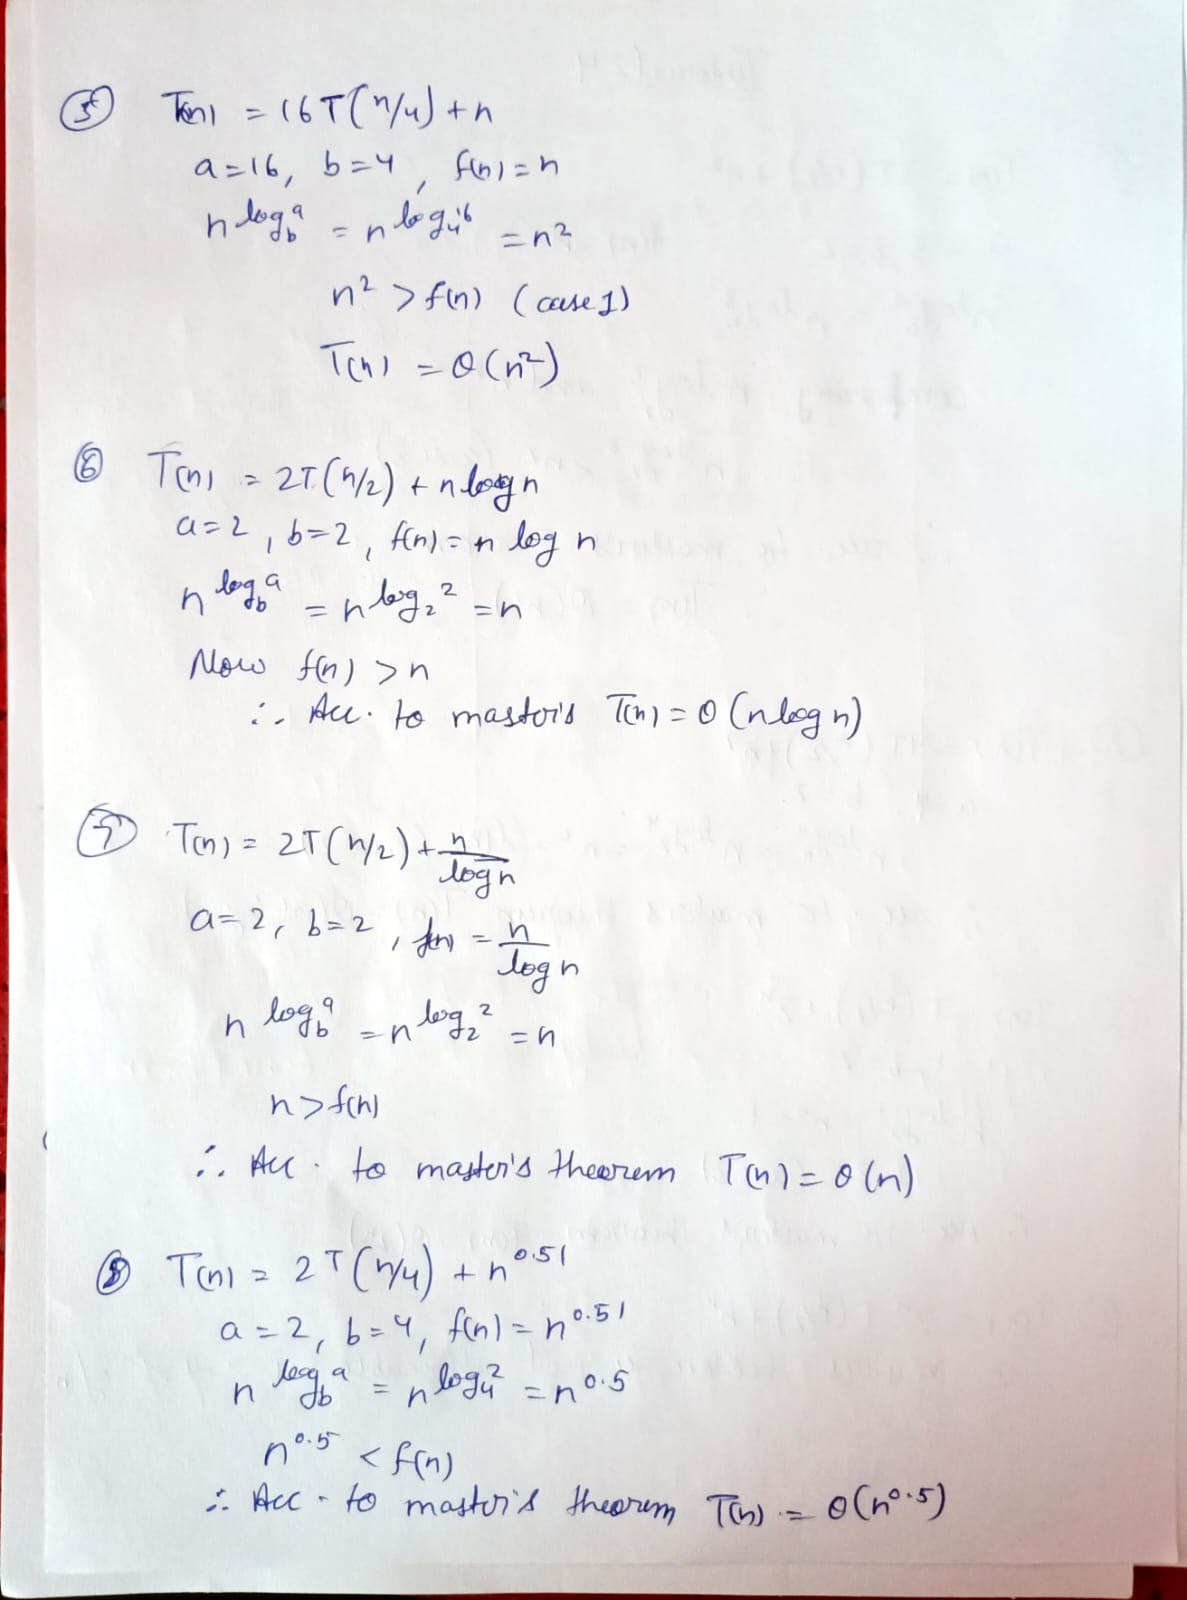 ⑤ T(n) = 16T(n/4) + n
a=16, b=4, f(n)=n
n^log_b^a = n^log_4^16 = n^2
n^2 > f(n) (case 1)
T(n) = θ(n^2)
⑥ T(n) = 2T(n/2) + n log n
a=2, b=2, f(n)=n log n
n^log_b^a = n^log_2^2 = n
Now f(n) > n
∴ Acc. to master's T(n) = θ(n log n)
⑦ T(n) = 2T(n/2) + n/log n
a=2, b=2, f(n) = n/log n
n^log_b^a = n^log_2^2 = n
n > f(n)
∴ Acc. to master's theorem T(n) = θ(n)
⑧ T(n) = 2T(n/4) + n^0.51
a=2, b=4, f(n) = n^0.51
n^log_b^a = n^log_4^2 = n^0.5
n^0.5 < f(n)
∴ Acc. to master's theorem T(n) = θ(n^0.5)